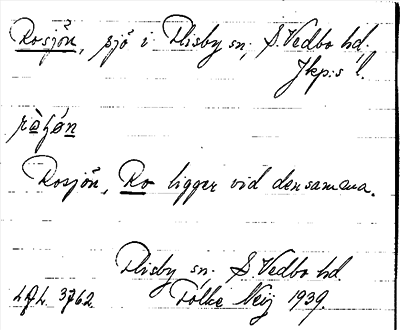 Rosjön, sjö i Flisby sn, S. Vedbo hd,
Jkp:s l.
Rosjön, Ro ligger vid densamma.
Flisby sn. S. Vedbo hd.
Folke Neij 1939.